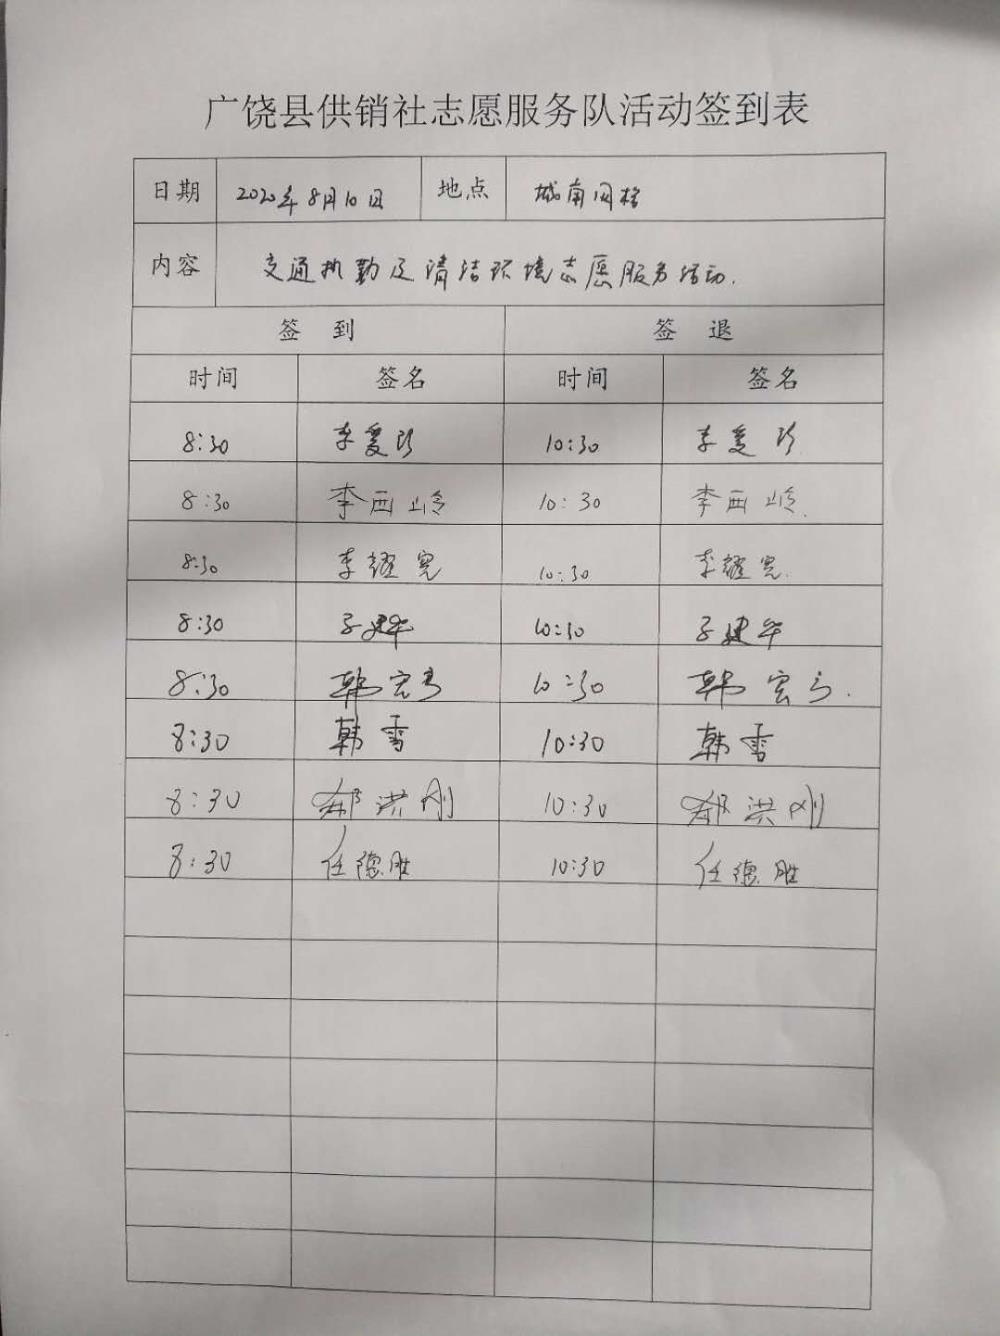 广饶县供销社志愿服务队活动签到表
日期 2020年8月10日 地点 城南网格
内容 交通执勤及清洁环境志愿服务活动.
签 到 签 退
时间 签名 时间 签名
8:30 李爱珍 10:30 李爱珍
8:30 李西岭 10:30 李西岭
8:30 李耀宽 10:30 李耀宽
8:30 建华 10:30 建华
8:30 韩宏 10:30 韩宏
8:30 韩雪 10:30 韩雪
8:30 郝洪刚 10:30 郝洪刚
8:30 任德胜 10:30 任德胜